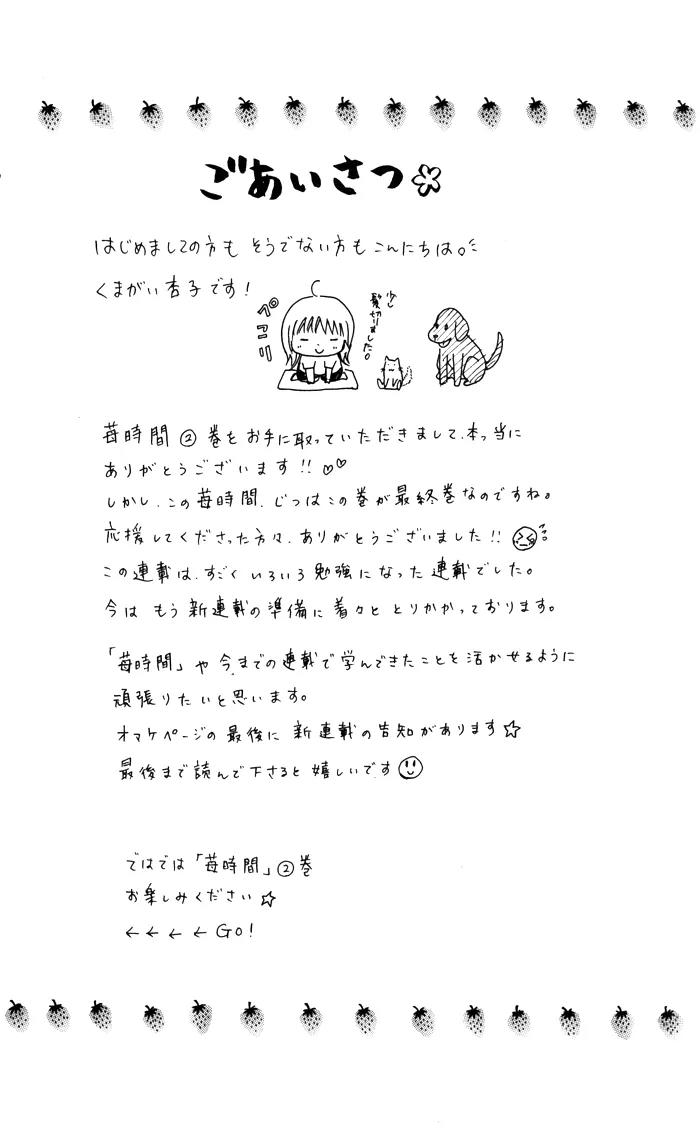 ごあいさつ
はじめましての方も そうでない方もこんにちは。
くまがい杏子です!
ペコリ
少し
髪切りました。
苺時間②巻をお手に取っていただきまして、本っ当に
ありがとうございます!!♡♡
しかし、この苺時間、じつはこの巻が最終巻なのですね。
応援してくださった方々、ありがとうございました!!
この連載は、すごくいろいろ勉強になった連載でした。
今はもう新連載の準備に着々ととりかかっております。
「苺時間」や今までの連載で学んできたことを活かせるように
頑張りたいと思います。
オマケページの最後に新連載の告知があります☆
最後まで読んで下さると嬉しいです
ではでは「苺時間」②巻
お楽しみください☆
←←←←GO!